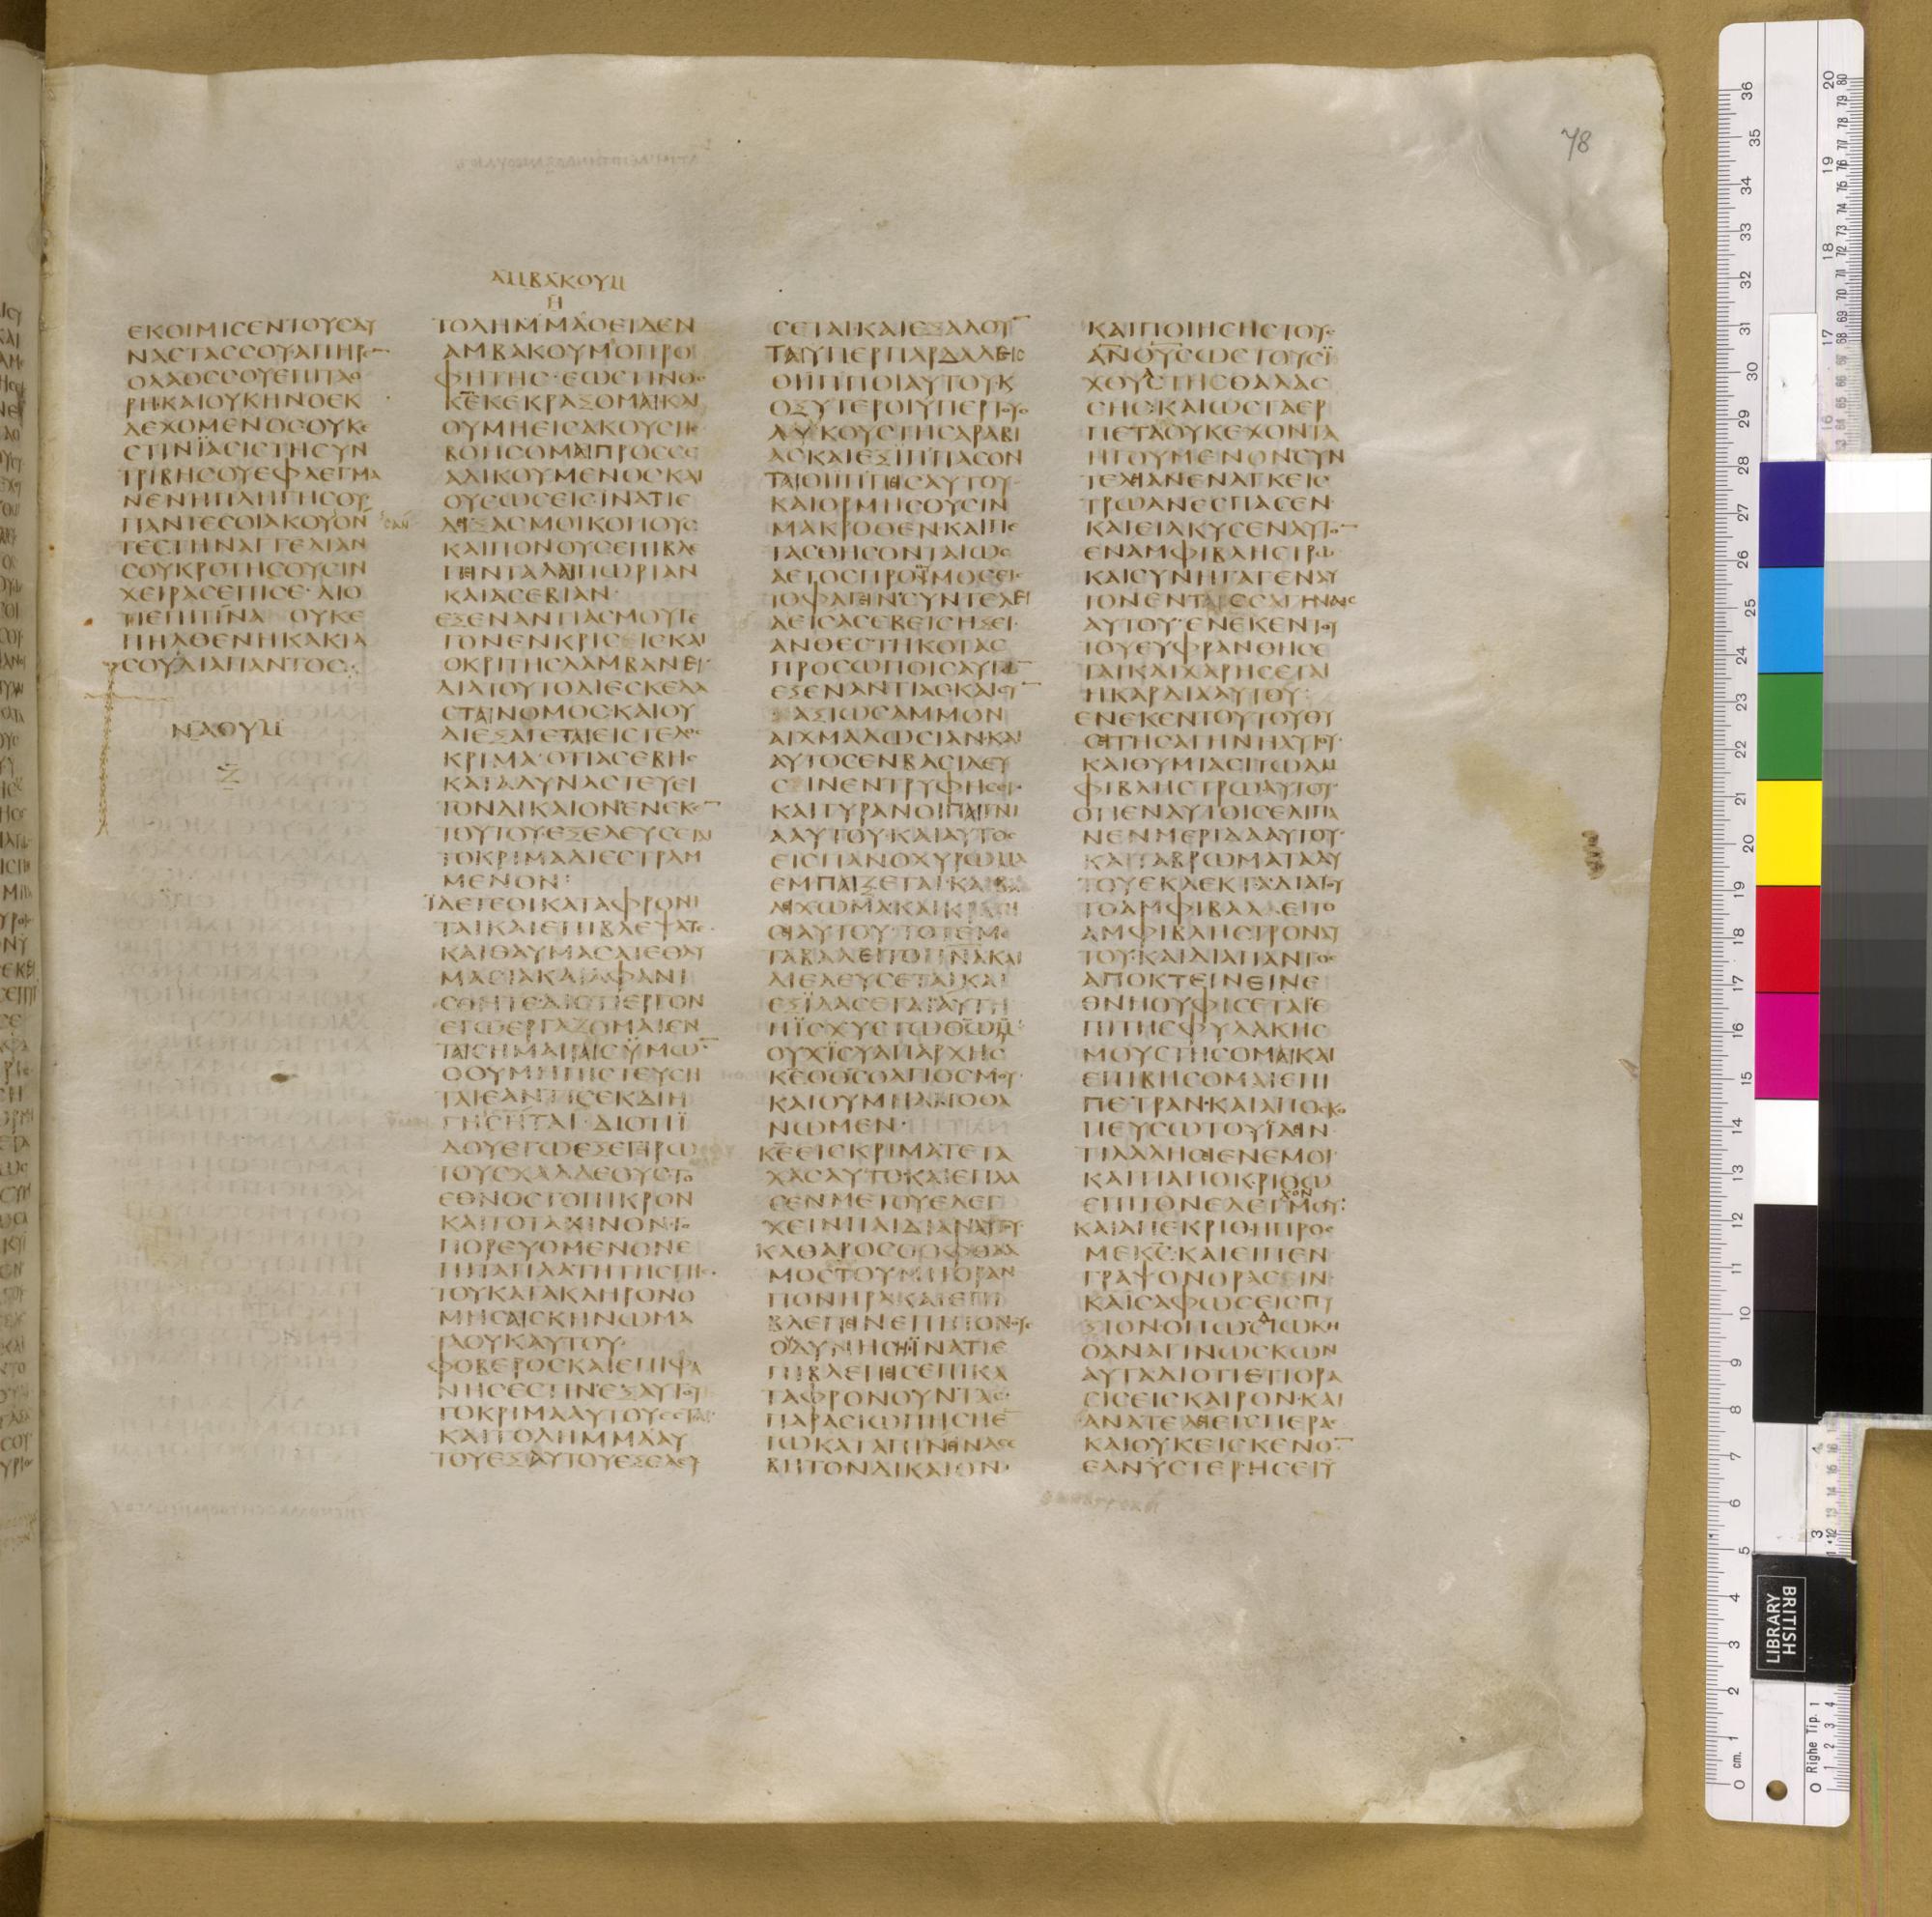 78
ΑΜΒΑΚΟΥΜ
Η
ΕΚΟΙΜΙCΕΝΤΟΥCΔΥ
ΝΑCΤΑCCΟΥ·ΑΠΗΡΕ
ΟΛΑΟCCΟΥΕΠΙΤΑΟ
ΡΗ·ΚΑΙΟΥΚΗΝΟΕΚ
ΔΕΧΟΜΕΝΟCΟΥΚΕ
CΤΙΝΪΑCΙCΤΗCΥΝ
ΤΡΙΒΗCΟΥΕΦΛΕΓΜΑ
ΝΕΝΗΠΛΗΓΗCΟΥ
ΠΑΝΤΕCΟΙΑΚΟΥΟΝ
ΤΕCΤΗΝΑΓΓΕΛΙΑΝ
CΟΥΚΡΟΤΗCΟΥCΙΝ
ΧΕΙΡΑCΕΠΙCΕ·ΔΙΟ
ΤΙΕΠΙΤΙΝΑ ΟΥΚΕ
ΠΗΛΘΕΝΗΚΑΚΙΑ
CΟΥΔΙΑΠΑΝΤΟC:
ΝΑΟΥΜ
Ζ
ΤΟΛΗΜΜΑΟΕΙΔΕΝ
ΑΜΒΑΚΟΥΜΟΠΡΟ
ΦΗΤΗC·ΕΩCΤΙΝΟC
Κ̅Ε̅ΚΕΚΡΑΞΟΜΑΙΚΑΙ
ΟΥΜΗΕΙCΑΚΟΥCΗC
ΒΟΗCΟΜΑΙΠΡΟCCΕ
ΑΔΙΚΟΥΜΕΝΟCΚΑΙ
ΟΥCΩCΕΙC·ΪΝΑΤΙΕ
ΔΙΞΑCΜΟΙΚΟΠΟΥC
ΚΑΙΠΟΝΟΥCΕΠΙΒΛΕ
ΠΙΝΤΑΛΑΙΠΩΡΙΑΝ
ΚΑΙΑCΕΒΙΑΝ·
ΕΞΕΝΑΝΤΙΑCΜΟΥΓΕ
ΓΟΝΕΝΚΡΙCΕΙCΚΑΙ
ΟΚΡΙΤΗCΛΑΜΒΑΝΕΙ·
ΔΙΑΤΟΥΤΟΔΙΕCΚΕΔΑ
CΤΑΙΝΟΜΟC·ΚΑΙΟΥ
ΔΙΕΞΑΓΕΤΑΙΕΙCΤΕΛΟC
ΚΡΙΜΑ·ΟΤΙΑCΕΒΗC
ΚΑΤΑΔΥΝΑCΤΕΥΕΙ
ΤΟΝΔΙΚΑΙΟΝΕΝΕΚΕΝ
ΤΟΥΤΟΥ·ΕΞΕΛΕΥCΕΤΑΙ
ΤΟΚΡΙΜΑΔΙΕCΤΡΑΜ
ΜΕΝΟΝ:
ΪΔΕΤΕΟΙΚΑΤΑΦΡΟΝΗ
ΤΑΙΚΑΙΕΠΙΒΛΕΨΑΤΕ·
ΚΑΙΘΑΥΜΑCΑΤΕΘΑΥ
ΜΑCΙΑΚΑΙΑΦΑΝΙ
CΘΗΤΕ·ΔΙΟΤΙΕΡΓΟΝ
ΕΓΩΕΡΓΑΖΟΜΑΙΕΝ
ΤΑΙCΗΜΑΙΡΑΙCΫΜΩΝ
ΟΟΥΜΗΠΙCΤΕΥCΗ
ΤΑΙΕΑΝΤΙCΕΚΔΙΗ
ΓΗCΗΤΑΙ·ΔΙΟΤΙΪ
ΔΟΥΕΓΩΕΞΕΓΕΙΡΩ
ΤΟΥCΧΑΛΔΕΟΥC·ΤΟ
ΕΘΝΟCΤΟΠΙΚΡΟΝ
ΚΑΙΤΟΤΑΧΙΝΟΝ·ΤΟ
ΠΟΡΕΥΟΜΕΝΟΝΕ
ΠΙΤΑΠΛΑΤΗΤΗCΓΗC·
ΤΟΥΚΑΤΑΚΛΗΡΟΝΟ
ΜΗCΑΙCΚΗΝΩΜΑ
ΤΑΟΥΚΑΥΤΟΥ·
ΦΟΒΕΡΟCΚΑΙΕΠΙΦΑ
ΝΗCΕCΤΙΝ·ΕΞΑΥΤΟΥ
ΤΟΚΡΙΜΑΑΥΤΟΥΕCΤΑΙ·
ΚΑΙΤΟΛΗΜΜΑΑΥ
ΤΟΥΕΞΑΥΤΟΥΕΞΕΛΕΥ
CΕΤΑΙ·ΚΑΙΕΞΑΛΟΥΝ
ΤΑΙΥΠΕΡΠΑΡΔΑΛΕΙC
ΟΙΠΠΟΙΑΥΤΟΥ·Κ
ΟΞΥΤΕΡΟΙΥΠΕΡΤΟΥC
ΛΥΚΟΥCΤΗCΑΡΑΒΙ
ΑC·ΚΑΙΕΞΙΠΠΑCΟΝ
ΤΑΙΟΙΙΠΠΕΙCΑΥΤΟΥ·
ΚΑΙΟΡΜΗCΟΥCΙΝ
ΜΑΚΡΟΘΕΝ·ΚΑΙΠΕ
ΤΑCΘΗCΟΝΤΑΙΩC
ΑΕΤΟCΠΡΟΘΥΜΟCΕΙC
ΤΟΦΑΓΕΙΝ·CΥΝΤΕΛΕΙ
ΑΕΙCΑCΕΒΕΙCΗΞΕΙ·
ΑΝΘΕCΤΗΚΟΤΑC
ΠΡΟCΩΠΟΙCΑΥΤΩΝ
ΕΞΕΝΑΝΤΙΑC·ΚΑΙCΥΝ
ΑΞΙΩCΑΜΜΟΝ
ΑΙΧΜΑΛΩCΙΑΝ·ΚΑΙ
ΑΥΤΟCΕΝΒΑCΙΛΕΥ
CΙΝΕΝΤΡΥΦΗCΕΙ·
ΚΑΙΤΥΡΑΝΟΙΠΑΙΓΝΙ
ΑΑΥΤΟΥ·ΚΑΙΑΥΤΟC
ΕΙCΠΑΝΟΧΥΡΩΜΑ
ΕΜΠΑΙΞΕΤΑΙ·ΚΑΙΒΑ
ΛΙΧΩΜΑΚΑΙΚΡΑΤΗ
CΙΑΥΤΟΥ·ΤΟΤΕΜΕ
ΤΑΒΑΛΕΙΤΟΠΝ̅ΑΚΑΙ
ΔΙΕΛΕΥCΕΤΑΙ·ΚΑΙ
ΕΞΙΛΑCΕΤΑΙ·ΑΥΤΗ
ΗΪCΧΥCΤΩΘ̅Ω̅ΜΟΥ:
ΟΥΧΪCΥΑΠΑΡΧΗC
Κ̅Ε̅Ο̅Θ̅C̅ΟΑΓΙΟCΜΟΥ·
ΚΑΙΟΥΜΗΑΠΟΘΑ
ΝΩΜΕΝ·
Κ̅Ε̅ΕΙCΚΡΙΜΑΤΕΤΑ
ΧΑCΑΥΤΟ·ΚΑΙΕΠΛΑ
CΕΝΜΕΤΟΥΕΛΕΓ
ΧΕΙΝΠΑΙΔΙΑΝΑΥΤΟΥ·
ΚΑΘΑΡΟCΟΟΦΘΑΛ
ΜΟCΤΟΥΜΗΟΡΑΝ
ΠΟΝΗΡΑ·ΚΑΙΕΠΙ
ΒΛΕΠΕΙΝΕΠΙΠΟΝΟΥC
ΟΔΥΝΗC·ΪΝΑΤΙΕ
ΠΙΒΛΕΠΕΙCΕΠΙΚΑ
ΤΑΦΡΟΝΟΥΝΤΑC·
ΠΑΡΑCΙΩΠΗCΗΕΝ
ΤΩΚΑΤΑΠΙΝΕΙΝΑCΕ
ΒΗΤΟΝΔΙΚΑΙΟΝ·
ΚΑΙΠΟΙΗCΗCΤΟΥC
ΑΝΟΥCΩCΤΟΥCΪ
ΧΘΥCΤΗCΘΑΛΑC
CΗC·ΚΑΙΩCΤΑΕΡ
ΠΕΤΑΟΥΚΕΧΟΝΤΑ
ΗΓΟΥΜΕΝΟΝCΥΝ
ΤΕΛΙΑΝΕΝΑΓΚΕΙC
ΤΡΩΑΝΕCΠΑCΕΝ·
ΚΑΙΕΙΛΚΥCΕΝΑΥΤΟΝ
ΕΝΑΜΦΙΒΛΗCΤΡΩ
ΚΑΙCΥΝΗΓΑΓΕΝΑΥ
ΤΟΝΕΝΤΑΙCCΑΓΗΝΑΙC
ΑΥΤΟΥ·ΕΝΕΚΕΝΤΟΥ
ΤΟΥΕΥΦΡΑΝΘΗCΕ
ΤΑΙΚΑΙΧΑΡΗCΕΤΑΙ
ΗΚΑΡΔΙΑΑΥΤΟΥ·
ΕΝΕΚΕΝΤΟΥΤΟΥΘΥ
CΕΙΤΗCΑΓΗΝΗΑΥΤΟΥ·
ΚΑΙΘΥΜΙΑCΙΤΩΑΜ
ΦΙΒΛΗCΤΡΩΑΥΤΟΥ·
ΟΤΙΕΝΑΥΤΟΙCΕΛΙΠΑ
ΝΕΝΜΕΡΙΔΑΑΥΤΟΥ·
ΚΑΙΤΑΒΡΩΜΑΤΑΑΥ
ΤΟΥΕΚΛΕΚΤΑ·ΔΙΑΤΟΥ
ΤΟΑΜΦΙΒΑΛΕΙΤΟ
ΑΜΦΙΒΛΗCΤΡΟΝΑΥ
ΤΟΥ·ΚΑΙΔΙΑΠΑΝΤΟC
ΑΠΟΚΤΕΙΝΕΙΝΕ
ΘΝΗΟΥΦΙCΕΤΑΙ·Ε
ΠΙΤΗCΦΥΛΑΚΗC
ΜΟΥCΤΗCΟΜΑΙΚΑΙ
ΕΠΙΒΗCΟΜΑΙΕΠΙ
ΠΕΤΡΑΝ·ΚΑΙΑΠΟCΚΟ
ΠΕΥCΩΤΟΥΪΔΙΝ
ΤΙΛΑΛΗCΙΕΝΕΜΟΙ
ΚΑΙΤΙΑΠΟΚΡΙΘΩ
ΕΠΙΤΟΝΕΛΕΓΜΟΥ:
ΧΟΝ
ΚΑΙΑΠΕΚΡΙΘΗΠΡΟC
ΜΕΚ̅C̅·ΚΑΙΕΙΠΕΝ
ΓΡΑΨΟΝΟΡΑCΕΙΝ·
ΚΑΙCΑΦΩCΕΙCΠΥ
ΞΙΟΝΟΠΩCΔΙΩΚΗ
ΟΑΝΑΓΙΝΩCΚΩΝ
ΑΥΤΑΔΙΟΤΙΕΤΙΟΡΑ
CΙCΕΙCΚΑΙΡΟΝ·ΚΑΙ
ΑΝΑΤΕΛΕΙΕΙCΠΕΡΑC
ΚΑΙΟΥΚΕΙCΚΕΝΟΝ
ΕΑΝΫCΤΕΡΗCΕΙΫ
3
BRITISH
LIBRARY
0 cm. 1 2 3 4 5 6 7 8 9 10 11 12 13 14 15 16 17 18 19 20 21 22 23 24 25 26 27 28 29 30 31 32 33 34 35 36
0 Righe Tip. 1